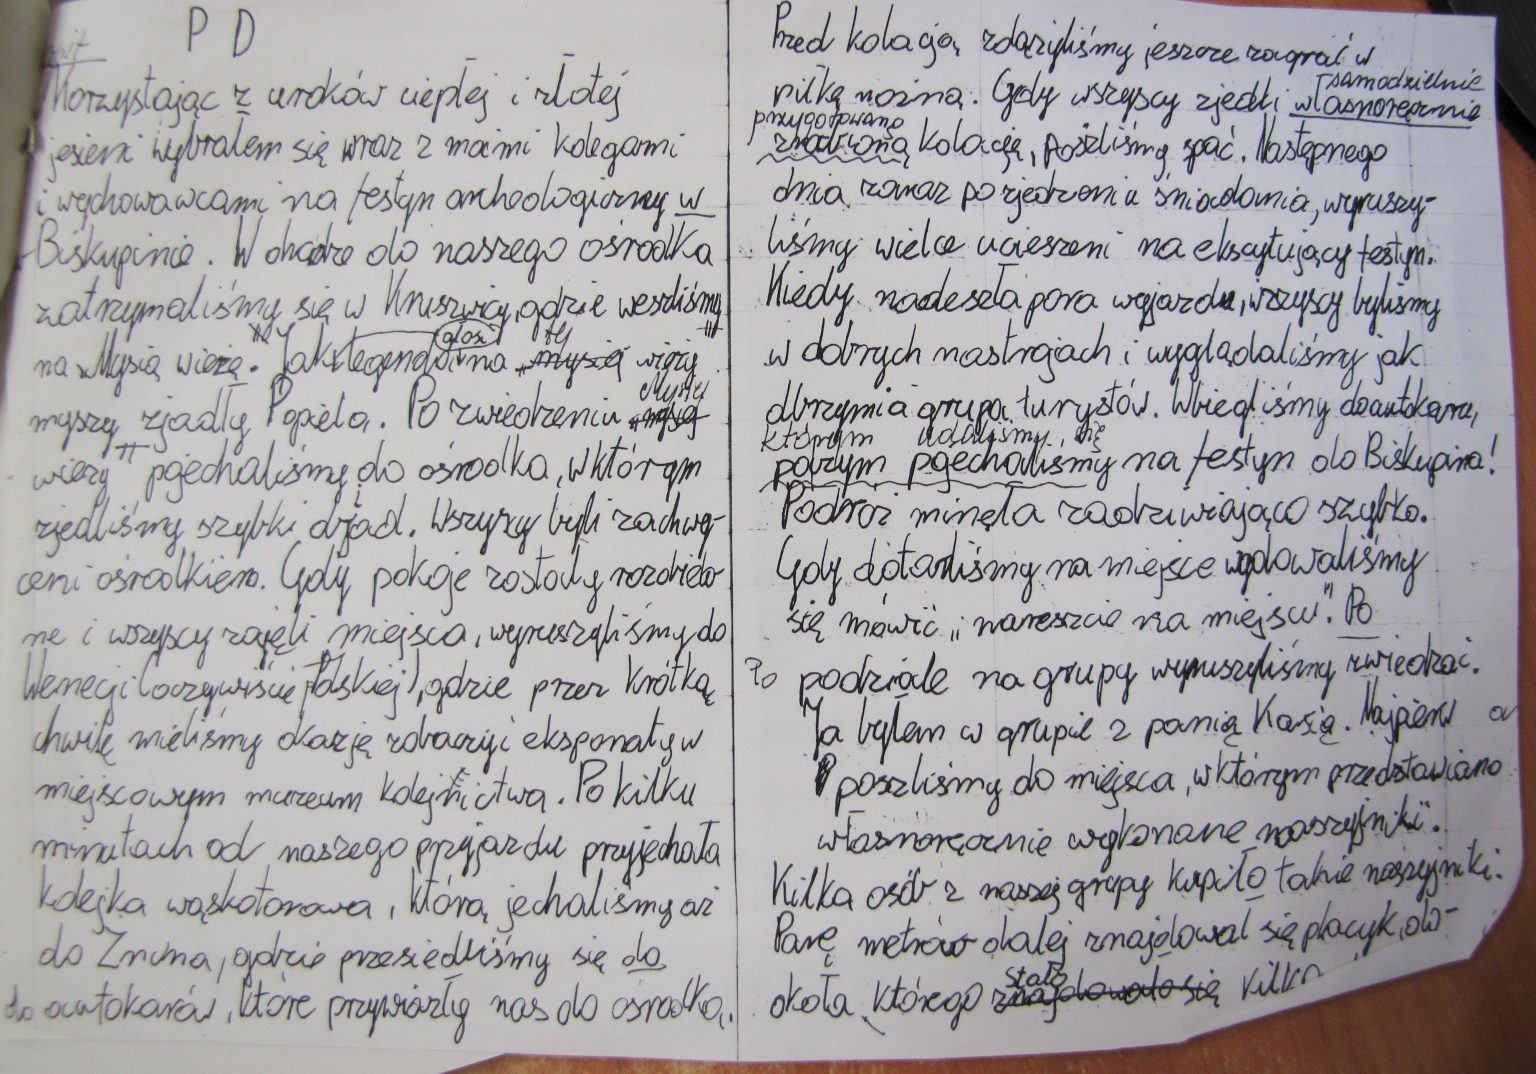 P D
Korzystając z uroków ciepłej i złotej
jesieni wybrałem się wraz z moimi kolegami
i wychowawcami na festyn archeologiczny w
Biskupinie. W drodze do naszego ośrodka
zatrzymaliśmy się w Kruszwicy, gdzie weszliśmy
na „Mysią wieżę". Jak legenda głosi na „mysiej wieży"
myszy zjadły Popiela. Po zwiedzeniu „mysiej Mysiej
wieży" pojechaliśmy do ośrodka, w którym
zjedliśmy szybki obiad. Wszyscy byli zachwy-
ceni ośrodkiem. Gdy pokoje zostały rozdzielo-
ne i wszyscy zajęli miejsca, wyruszyliśmy do
Wenecji (oczywiście Polskiej), gdzie przez krótką
chwilę mieliśmy okazję zobaczyć eksponaty w
miejscowym muzeum kolejnictwa. Po kilku
minutach od naszego przyjazdu przyjechała
kolejka wąskotorowa, którą jechaliśmy aż
do Żnina, gdzie przesiedliśmy się do
do autokarów, które przywiozły nas do ośrodka.
Przed kolacją zdążyliśmy jeszcze zagrać w
samodzielnie
piłkę nożną. Gdy wszyscy zjedli własnoręcznie
przygotowaną
zrobioną kolację, poszliśmy spać. Następnego
dnia zaraz po zjedzeniu śniadania, wyruszy-
liśmy wielce ucieszeni na ekscytujący festyn.
Kiedy nadeszła pora wyjazdu, wszyscy byliśmy
w dobrych nastrojach i wyglądaliśmy jak
olbrzymia grupa turystów. Wbiegliśmy do autokaru,
którym udaliśmy się
poczym pojechaliśmy na festyn do Biskupina!
Podróż minęła zadziwiająco szybko.
Gdy dotarliśmy na miejsce radowaliśmy
się mówić „nareszcie na miejscu". Po
Po podziale na grupy wyruszyliśmy zwiedzać.
Ja byłem w grupie z panią Kasią. Najpierw
poszliśmy do miejsca, w którym przedstawiano
własnoręcznie wykonane naszyjniki.
Kilka osób z naszej grupy kupiło takie naszyjniki.
Parę metrów dalej znajdował się placyk, do-
stało
okoła którego znajdowało się kilka